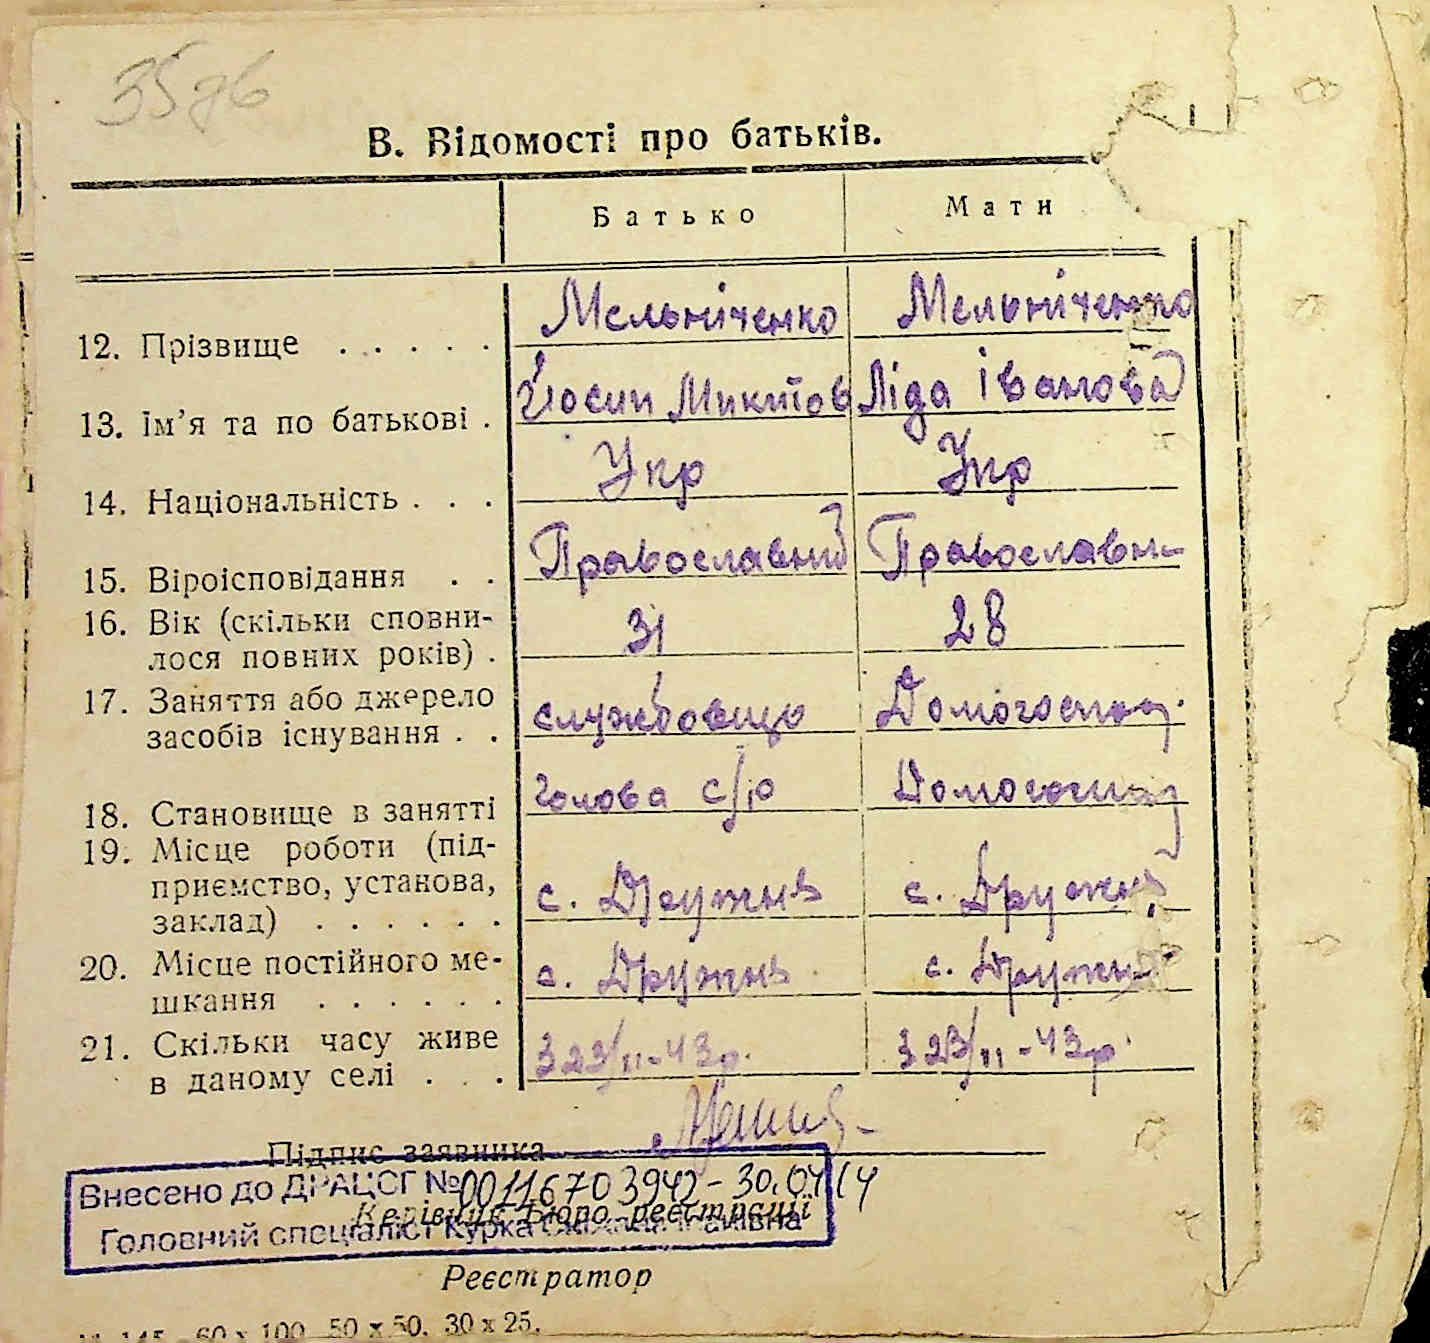 35 зв
В. Відомості про батьків.
Батько Мати
12. Прізвище . . . . . Мельніченко Мельніченко
13. Ім’я та по батькові . Йосип Микитов Ліда Іванова
14. Національність . . . Укр Укр
15. Віроісповідання . . Православний Православн
16. Вік (скільки сповни-
лося повних років) . 31 28
17. Заняття або джерело
засобів існування . . службовець Домогоспод.
18. Становище в занятті Голова Домогоспод
19. Місце роботи (під-
приємство, установа,
заклад) . . . . . . с. Дружнє с. Дружнє
20. Місце постійного ме-
шкання . . . . . . с. Дружнє с. Дружнє
21. Скільки часу живе
в даному селі . . . З 23/II-43р. З 23/II-43р.
Підпис заявника
Внесено до ДРАЦСГ № 00116703942 - 30.04.14
Керівник Бюро реєстрації
Головний спеціаліст Курка
Реєстратор
60 х 100 50 х 50. 30 х 25.